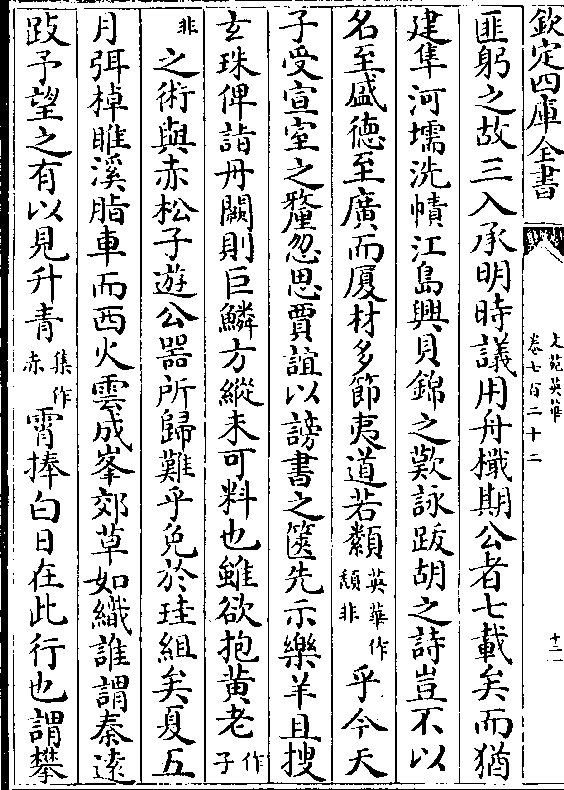 欽定四庫全書
文苑英華
卷七百二十二
十二
匪躬之故三入承明時議用舟檝期公者七載矣而猶
建隼河壖洗幘江島興貝錦之歎詠跋胡之詩豈不以
名至盛德至廣而厦材多節夷道若纇英華作頪非乎今天
子受宣室之釐忽思賈誼以謗書之篋先示樂羊且搜
玄珠俾詣丹闕則巨鱗方縱未可料也雖欲抱黄老作子
非之術與赤松子遊公器所歸難乎免於珪組矣夏五
月弭棹睢溪脂車而西火雲成峯郊草如織誰謂秦遠
跂予望之有以見升青集作赤霄捧白日在此行也謂攀